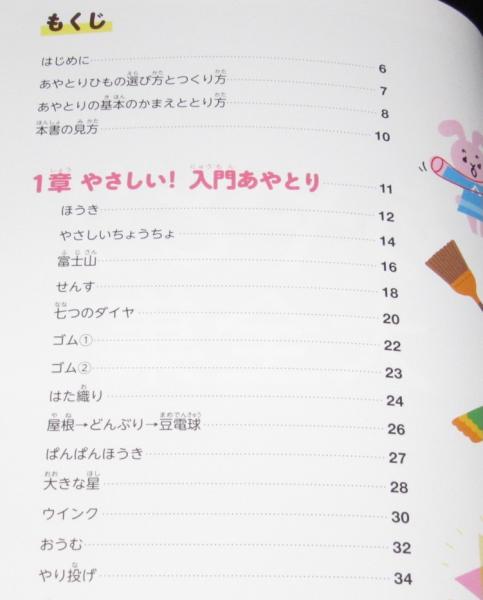 もくじ
はじめに 6
あやとりひもの選び方とつくり方 7
あやとりの基本のかまえととり方 8
本書の見方 10
1章 やさしい! 入門あやとり 11
ほうき 12
やさしいちょうちょ 14
富士山 16
せんす 18
七つのダイヤ 20
ゴム① 22
ゴム② 23
はた織り 24
屋根→どんぶり→豆電球 26
ぱんぱんほうき 27
大きな星 28
ウインク 30
おうむ 32
やり投げ 34